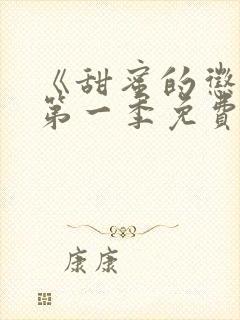 《甜蜜的惩
第一季免費
康康